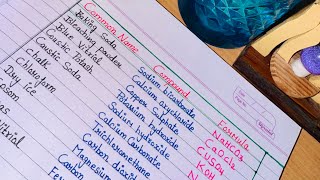 Common Name Compound Formula
Baking Soda Sodium bicarbonate NaHCO3
Bleaching powder Calcium oxychloride CaOCl2
Blue Vitriol Copper Sulphate CuSO4
Caustic Potash Potassium hydroxide KOH
Caustic Soda Sodium hydroxide
Chalk Calcium Carbonate
Chloroform Trichloromethane
Dry ice Carbon dioxid
Magnesium
Carbon